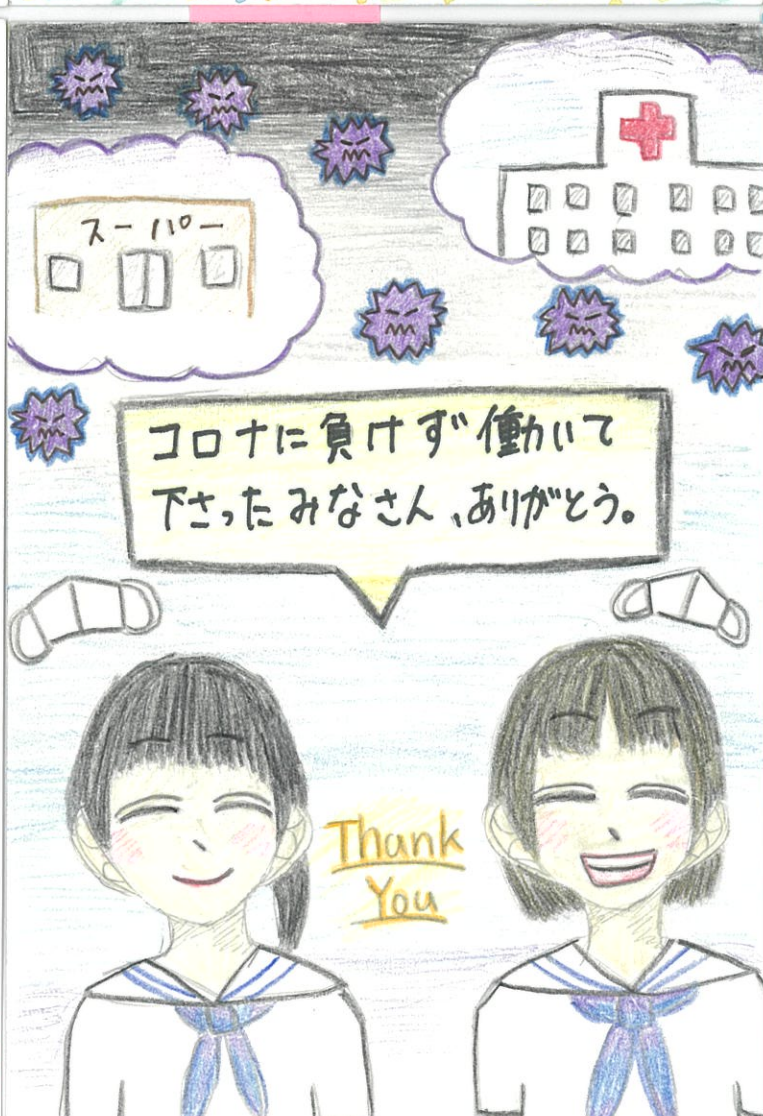 スーパー
コロナに負けず働いて
下さったみなさん、ありがとう。
Thank
You